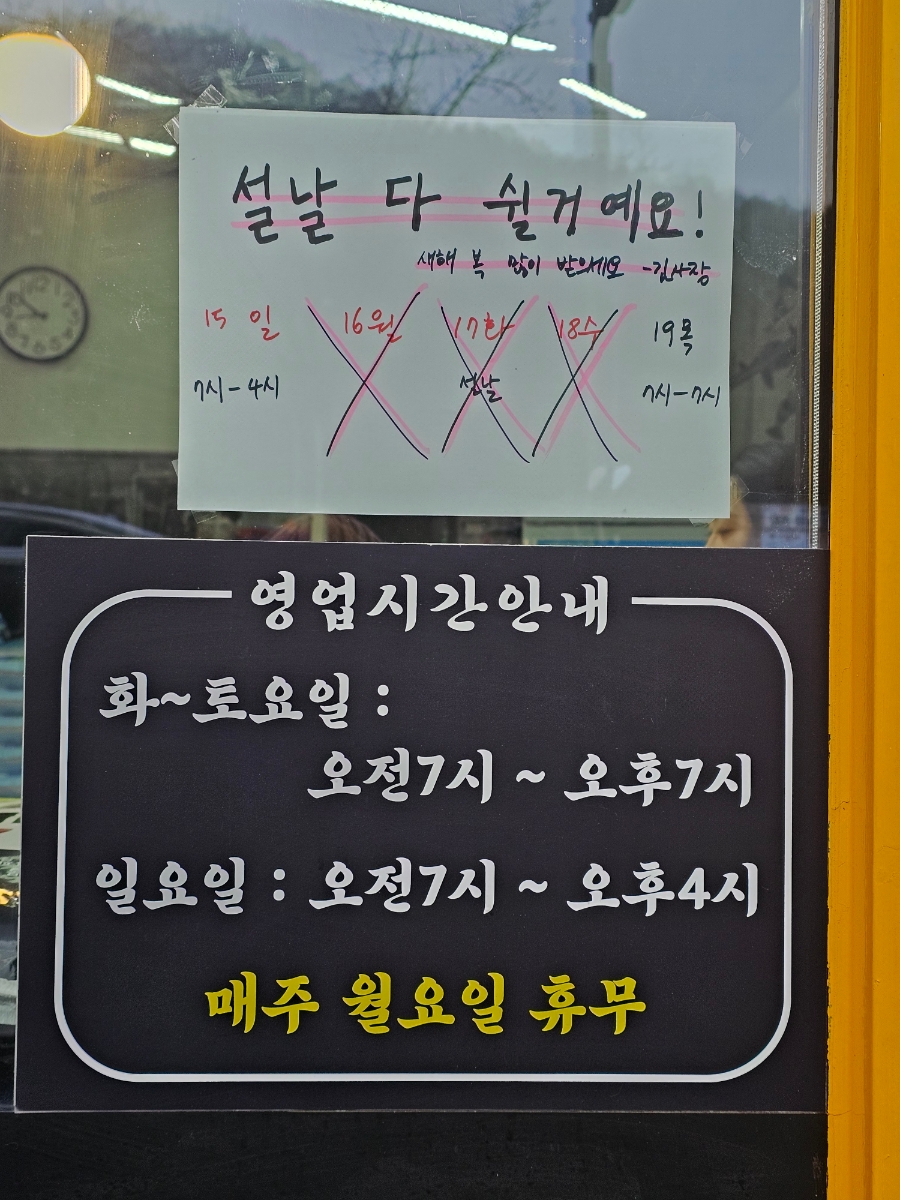 설날 다 쉴거예요!
새해 복 많이 받으세요 -김사장
15 일 16월 17화 18수 19목
7시-4시 설날 7시-7시
영업시간안내
화~토요일 :
오전7시 ~ 오후7시
일요일 : 오전7시 ~ 오후4시
매주 월요일 휴무